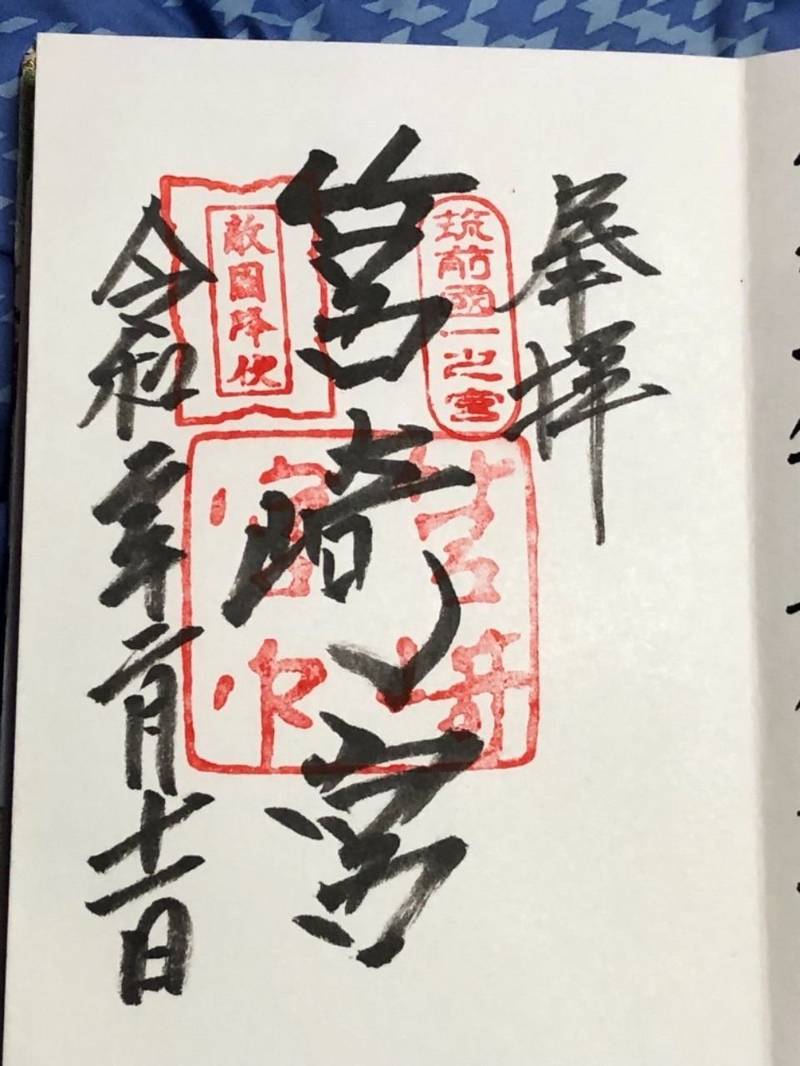 奉拝
筑前國一之宮
筥崎宮
敵國降伏
筥崎
宮印
令和二年二月十一日